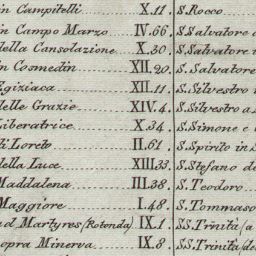 in Campitelli X.11 S. Rocco
in Campo Marzo IV.66 S. Salvatore
della Consolazione X.30 S. Salvatore
in Cosmedin XII.20 S. Salvatore
Egiziaca XII.11 S. Silvestro
delle Grazie XIV.4 S. Silvestro a
Liberatrice X.34 S. Simone e
di Loreto II.61 S. Spirito in S
della Luce XIII.33 S. Stefano d
Maddalena III.38 S. Teodoro
Maggiore I.48 S. Tommaso
ad Martyres (Rotonda) IX.1 SS. Trinità (a
sopra Minerva IX.8 SS. Trinità (de